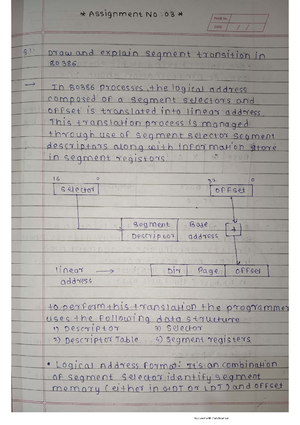 * Assignment No : 03 *
Draw and explain segment transition in
80386.
→ In 80386 processes, the logical address
composed of a segment selectors and
offset is translated into linear address
This translation process is managed
through use of segment selector segment
descriptors along with information store
in segment registers.
Selector offset
segment Base
Descriptor address
+
linear → Dir Page offset
address
to perform this translation the programmer
uses the following data structure
1) Descriptor 3) Selector
2) Descriptor Table 4) Segment registers
• Logical address format: It's an combination
of segment selector idantify segment
memory (either in GDT or LDT) and offset